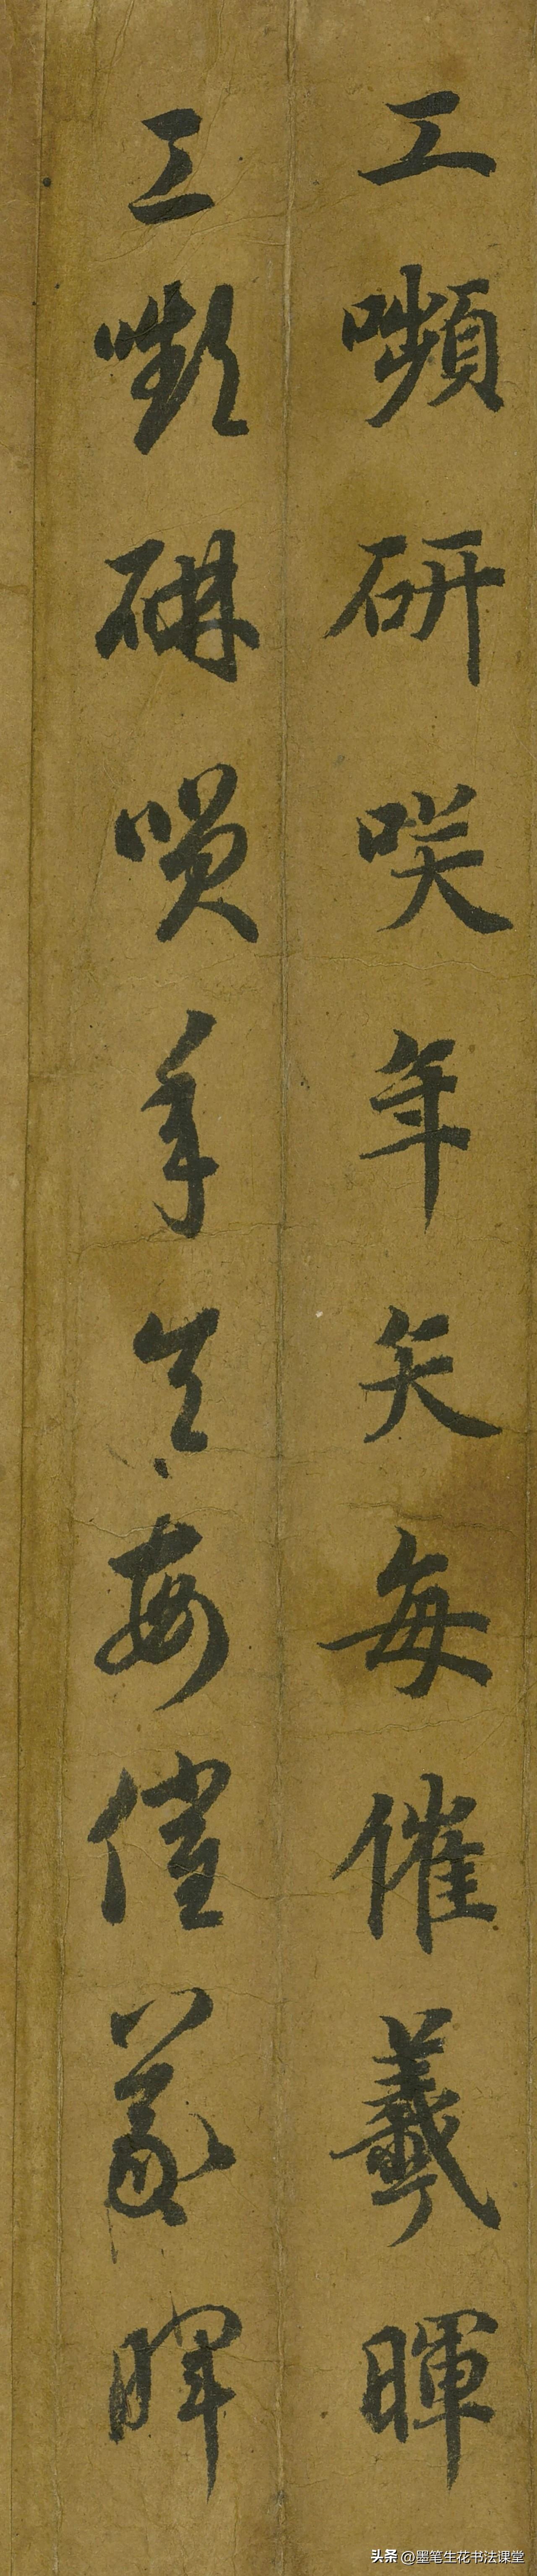 工嚬研咲年矢每催羲暉
工嚬研咲年矢每催羲暉
头条 @墨笔生花书法课堂